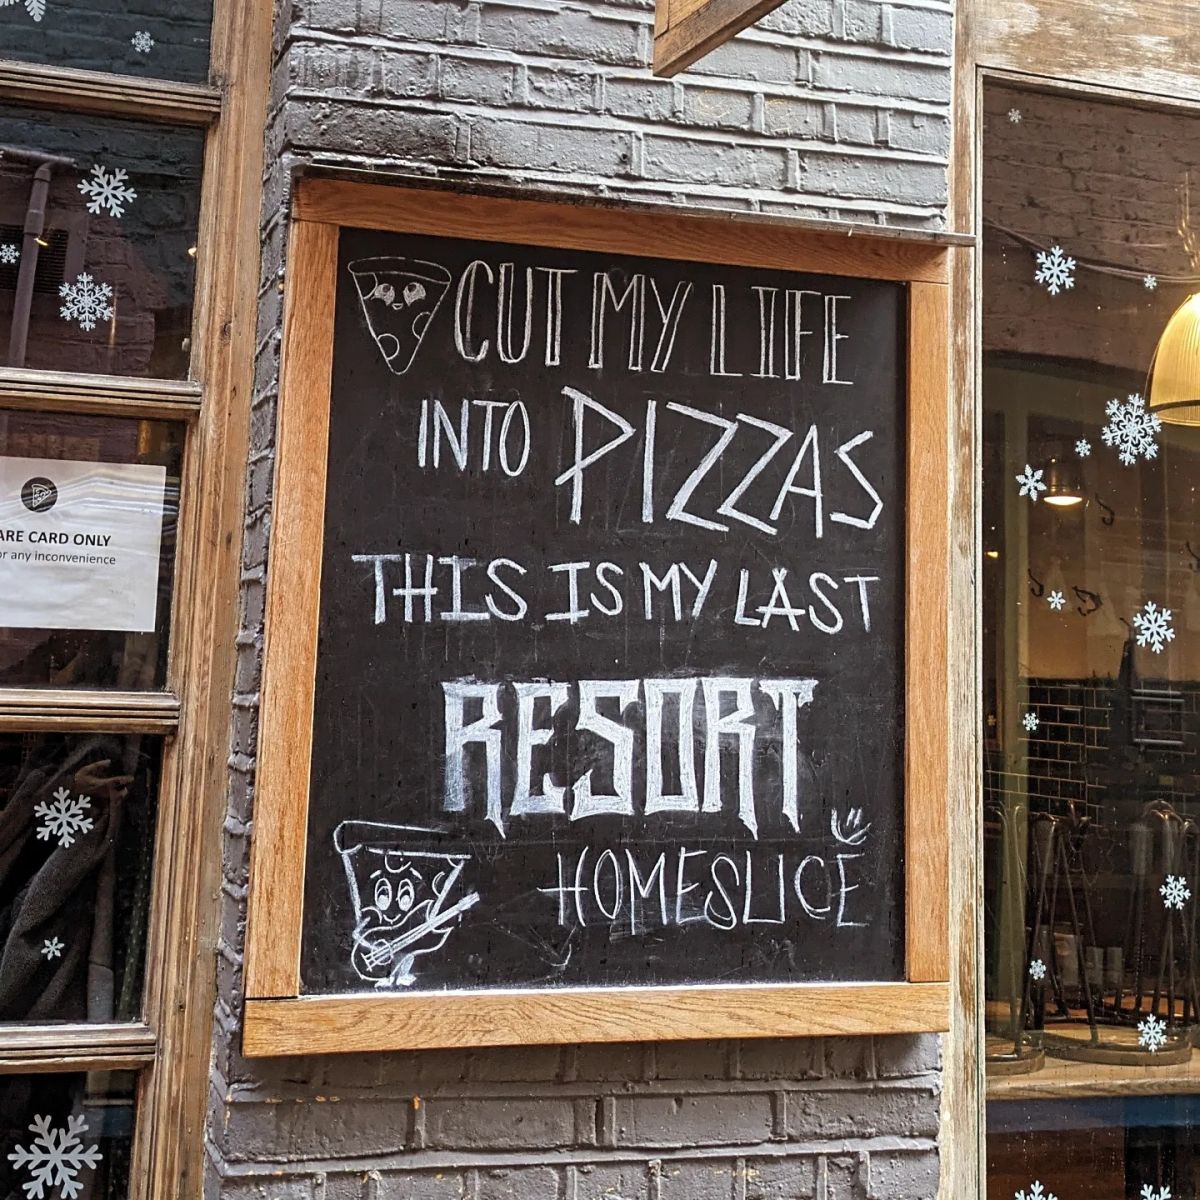 CUT MY LIFE
INTO PIZZAS
THIS IS MY LAST
RESORT
HOMESLICE
ARE CARD ONLY
or any inconvenience